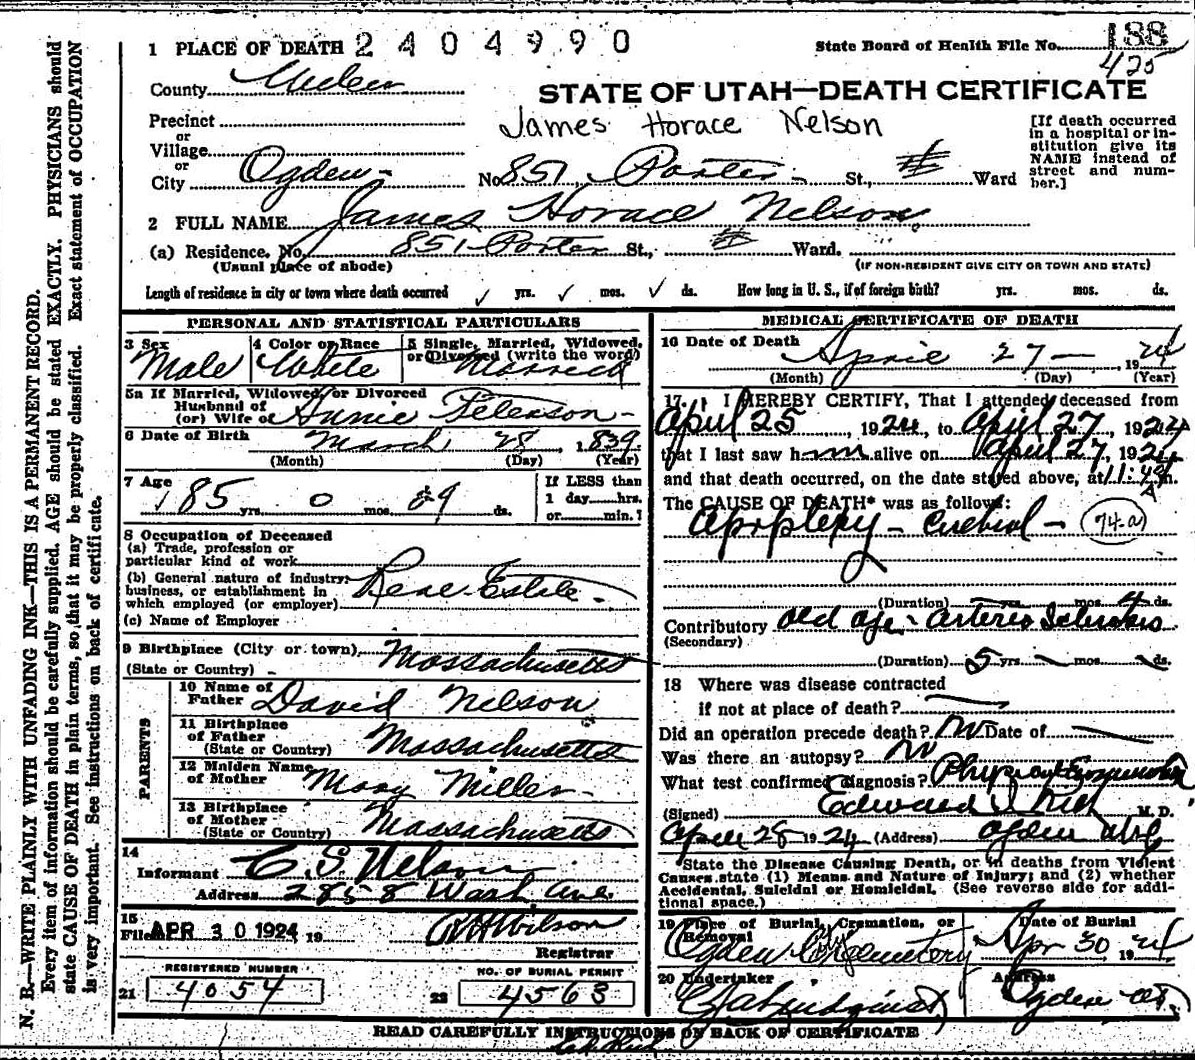 1 PLACE OF DEATH 2404990
State Board of Health File No. 188
425
County Weber
STATE OF UTAH—DEATH CERTIFICATE
Precinct
or
Village
or
City Ogden -
James Horace Nelson
No. 851 Porter - St., Ward
[If death occurred in a hospital or in-
stitution give its
NAME instead of
street and num-
ber.]
2 FULL NAME James Horace Nelson
(a) Residence, No. 851 Porter St., Ward.
(Usual place of abode)
(IF NON-RESIDENT GIVE CITY OR TOWN AND STATE)
Length of residence in city or town where death occurred ✓ yrs. ✓ mos. ✓ ds. How long in U. S., if of foreign birth? yrs. mos. ds.
PERSONAL AND STATISTICAL PARTICULARS
3 Sex
Male
4 Color or Race
White
5 Single, Married, Widowed,
or Divorced (write the word)
Married
5a If Married, Widowed, or Divorced
Husband of
(or) Wife of Annie Peterson -
6 Date of Birth March 28, 1839.
(Month) (Day) (Year)
7 Age
85 yrs. 0 mos. 29 ds.
If LESS than
1 day......hrs.
or......min. ?
8 Occupation of Deceased
(a) Trade, profession or
particular kind of work
(b) General nature of industry,
business, or establishment in
which employed (or employer) Real Estate -
(c) Name of Employer
9 Birthplace (City or town), Massachusetts
(State or Country)
PARENTS
10 Name of
Father David Nelson
11 Birthplace
of Father
(State or Country) Massachusetts
12 Maiden Name
of Mother Mary Miller -
13 Birthplace
of Mother
(State or Country) Massachusetts
14
Informant C. S. Nelson
Address 2858 Wash. Ave.
15
Filed APR 30 1924, 19
Wilson
Registrar
REGISTERED NUMBER
21 4054
NO. OF BURIAL PERMIT
22 4563
MEDICAL CERTIFICATE OF DEATH
16 Date of Death
April 27 — 1924
(Month) (Day) (Year)
17. I HEREBY CERTIFY, That I attended deceased from
April 25, 1924, to April 27, 1924
that I last saw him alive on April 27, 1924
and that death occurred, on the date stated above, at 11:45 A m.
The CAUSE OF DEATH* was as follows:
Apoplexy - Cerebral - (74-a)
(Duration) yrs. mos. 4 ds.
Contributory Old age - Arterio Sclerosis
(Secondary)
(Duration) 5 yrs. mos. ds.
18 Where was disease contracted
if not at place of death?
Did an operation precede death? No Date of
Was there an autopsy? No
What test confirmed diagnosis? Physical Examination
(Signed) Edward I. Rich M. D.
April 28 1924 (Address) Ogden Utah
*State the Disease Causing Death, or in deaths from Violent
Causes, state (1) Means and Nature of Injury; and (2) whether
Accidental, Suicidal or Homicidal. (See reverse side for addi-
tional space.)
19 Place of Burial, Cremation, or
Removal
Ogden City Cemetery
Date of Burial
Apr 30 1924
20 Undertaker
Lindquist
Address
Ogden Ut.
READ CAREFULLY INSTRUCTIONS ON BACK OF CERTIFICATE
N. B.—WRITE PLAINLY WITH UNFADING INK—THIS IS A PERMANENT RECORD.
Every item of information should be carefully supplied. AGE should be stated EXACTLY. PHYSICIANS should
state CAUSE OF DEATH in plain terms, so that it may be properly classified. Exact statement of OCCUPATION
is very important. See instructions on back of certificate.